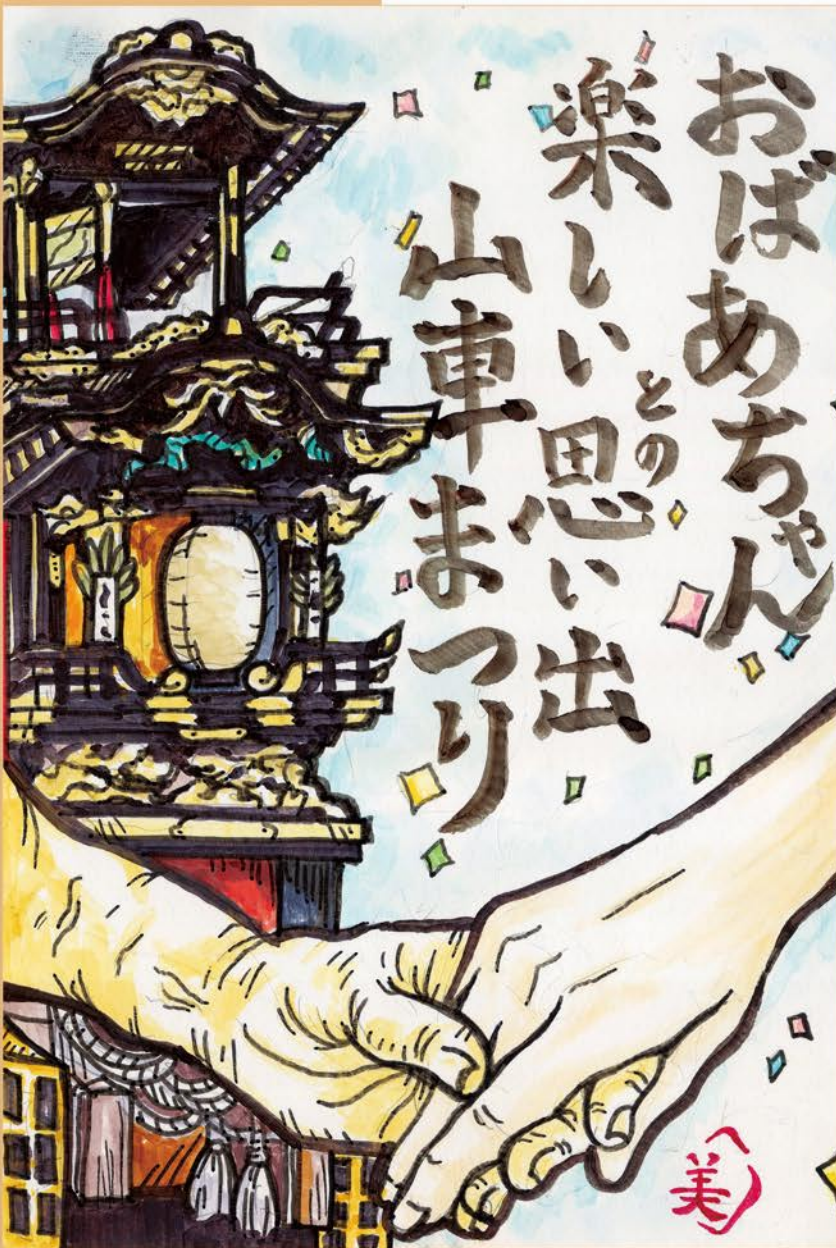 おばあちゃん
との
楽しい思い出
山車まつり
美